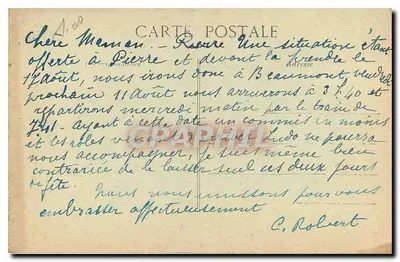 CARTE POSTALE
Chère Maman. - Une situation étant
offerte à Pierre et devant la prendre le
17 Août, nous irons donc à Beaumont vendredi
prochain 11 Août nous arriverons à 3 h. 40 et
repartirons mercredi matin par le train de
7h41 - Ayant à cette date un commis en moins
et les rôles venant d'arriver, Ludo ne pourra
nous accompagner, je suis même bien
contrariée de le laisser seul ces deux jours
de fête.
Nous nous unissons pour vous
embrasser affectueusement
C. Robert